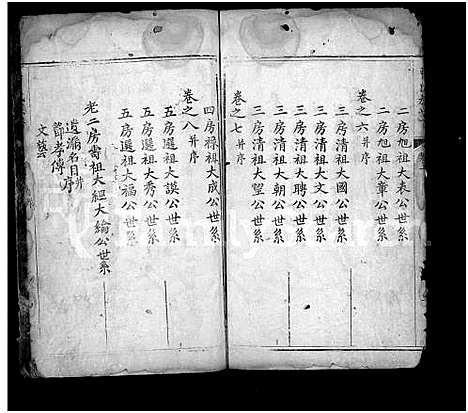 二房旭祖大表公世系
二房旭祖大章公世系
卷之六并序
三房清祖大國公世系
三房清祖大文公世系
三房清祖大聘公世系
三房清祖大朝公世系
三房清祖大望公世系
卷之七并序
四房祿祖大成公世系
卷之八并序
五房選祖大謨公世系
五房選祖大秀公世系
五房選祖大福公世系
老二房壽祖大經大綸公世系
遺漏名目并序
節孝傳
文藝